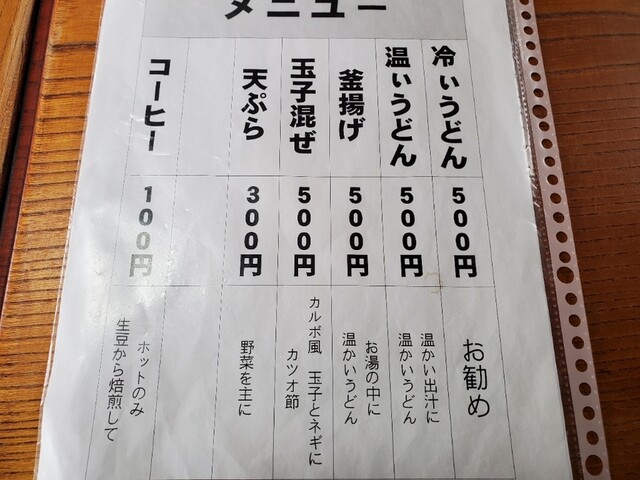 メニュー
冷いうどん
500円
お勧め
温いうどん
500円
温かい出汁に
温かいうどん
釜揚げ
500円
お湯の中に
温かいうどん
玉子混ぜ
500円
カルボ風 玉子とネギに
カツオ節
天ぷら
300円
野菜を主に
コーヒー
100円
ホットのみ
生豆から焙煎して